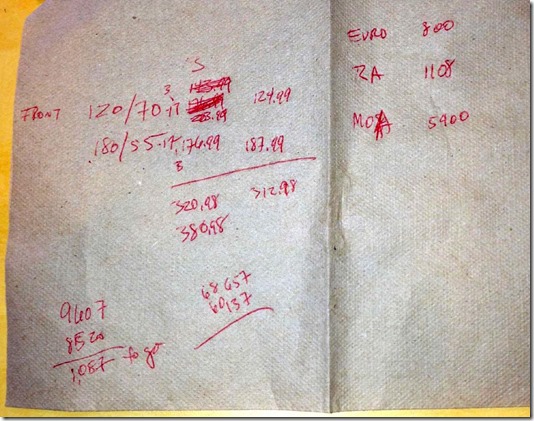 EURO 800
RA 1108
MOA 5900
S
FRONT 120/70-17 124.99
180/55-17, 176.99 187.99
320.98 312.98
380.98
9607
8520
1,087 to go
68657
60,137